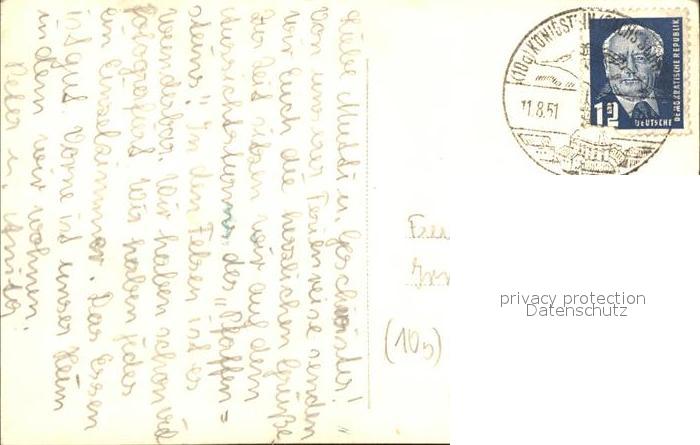 Liebe Mutti u. Geschwister!
Von unserer Ferienreise senden
wir Euch die herzlichen Grüße.
Zur Zeit sitzen wir auf dem
Aussichtsturm des "Pfaffen=
steins". In den Felsen ist es
wunderbar. Wir haben schon viel
fotografiert. Wir haben jeder
ein Einzelzimmer. Das Essen
ist gut. Vorne ist unser Heim
in dem wir wohnen.
Peter u. Anita.
(10a) KÖNIGSTEIN
11.8.51
12
DEUTSCHE
DEMOKRATISCHE REPUBLIK
(10b)
privacy protection
Datenschutz